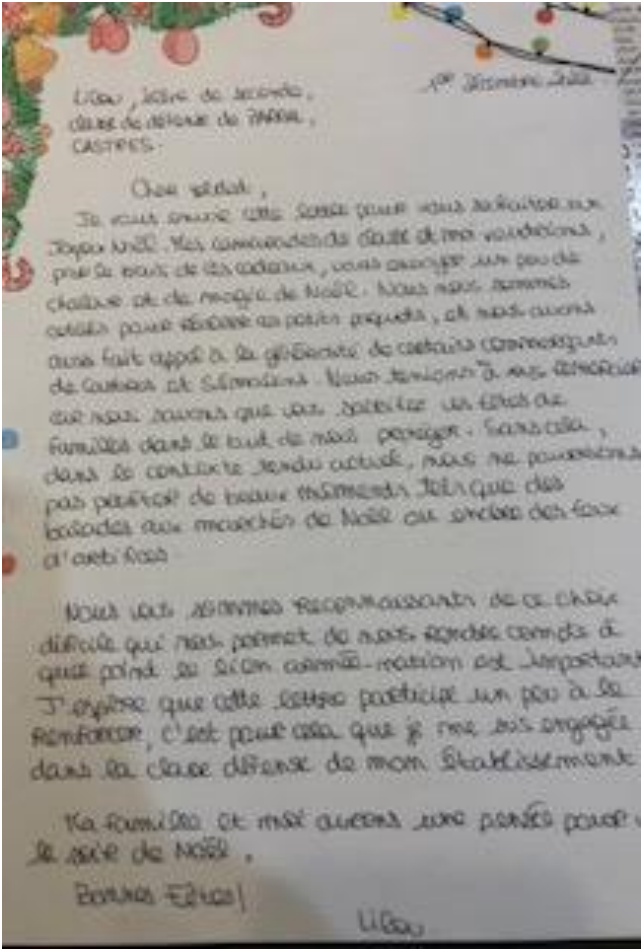 Lilou, élève de seconde,
classe de défense de BARRAL,
CASTRES.
1er Décembre
Cher soldat,
Je vous envoie cette lettre pour vous souhaiter un
Joyeux Noël. Mes camarades de classe et moi voudrions,
par le biais de ces cadeaux, vous envoyer un peu de
chaleur et de magie de Noël. Nous nous sommes
cotisés pour réaliser ces petits paquets, et nous avons
aussi fait appel à la générosité de certains commerçants
de Castres et Sémalens. Nous tenions à vous remercier
car nous savons que vous sacrifiez vos fêtes de
familles dans le but de nous protéger. Sans cela,
dans le contexte tendu actuel, nous ne pourrions
pas profiter de beaux moments tels que des
balades aux marchés de Noël ou encore des feux
d'artifices
Nous vous sommes reconnaissants de ce choix
difficile qui nous permet de nous rendre compte à
quel point le lien armée-nation est important
J'espère que cette lettre participe un peu à le
renforcer, c'est pour cela que je me suis engagée
dans la classe défense de mon établissement
Ma famille et moi aurons une pensée pour
le soir de Noël.
Bonnes Fêtes!
Lilou